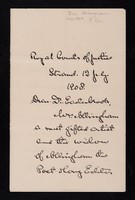 Royal Courts of Justice
Strand. 13 July
1908.
Dear Dr.
Mrs Allingham
a most gifted artist
and the widow
of Allingham the
Poet & long Editor